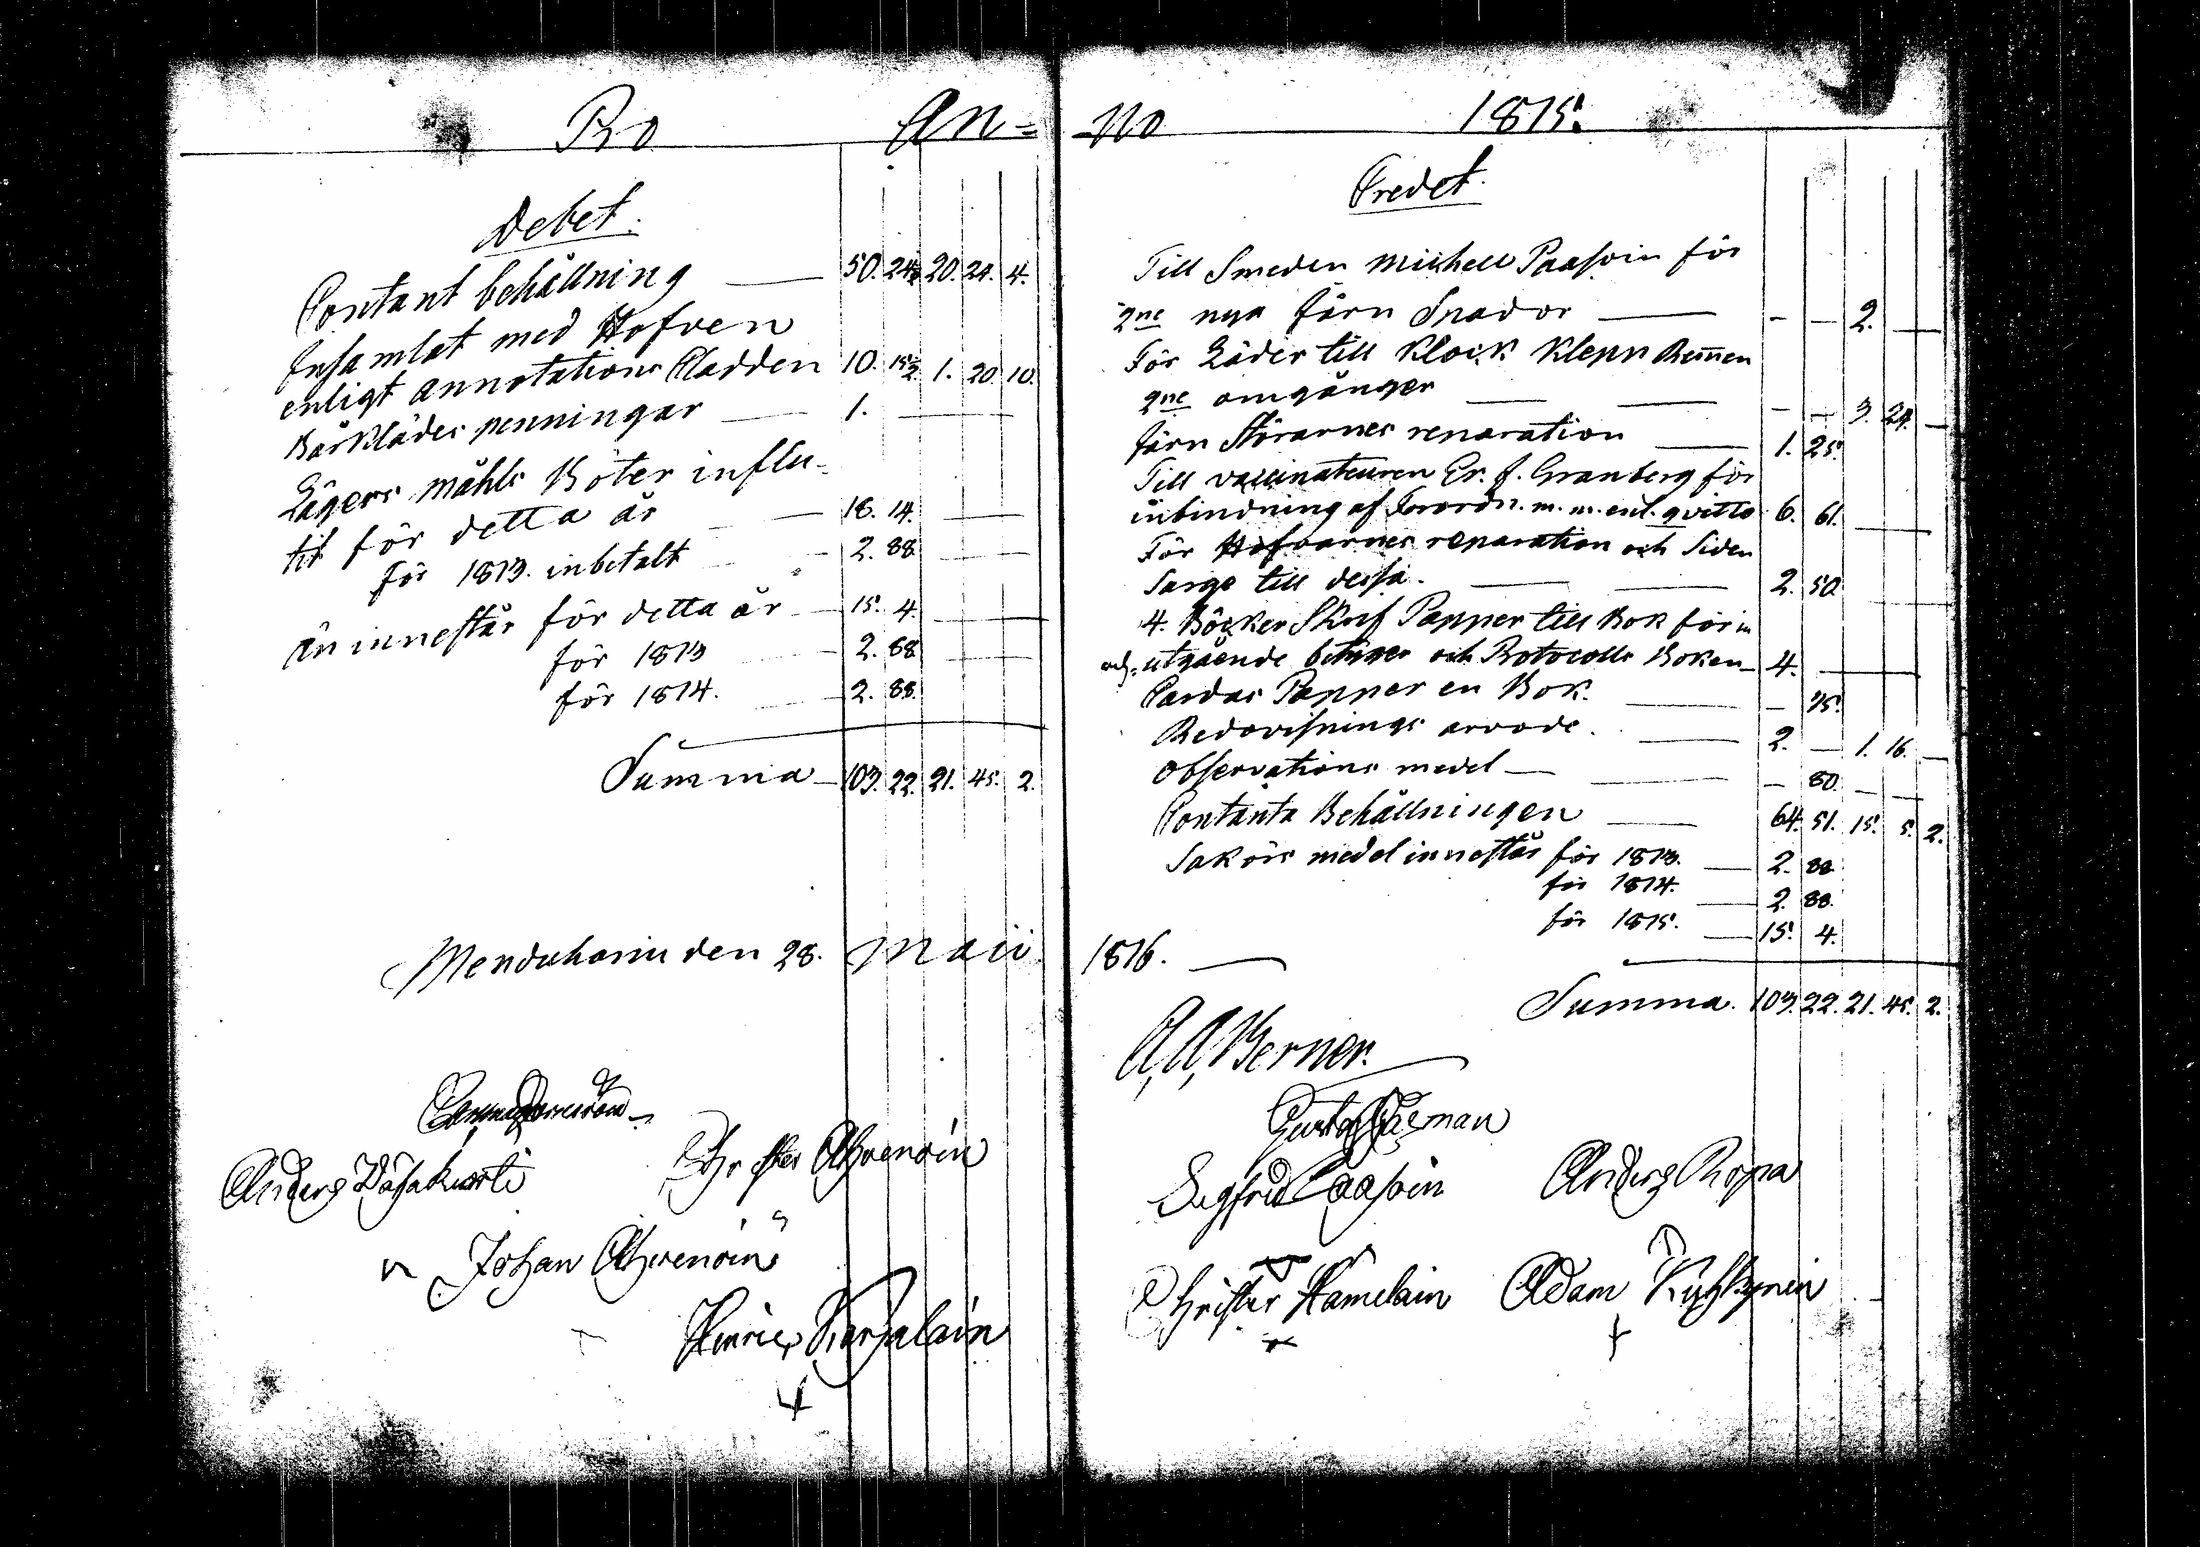 Pro An=
Debet.
Contant behållning — 50. 24½ 20. 24. 4.
Insamlat med Hofven
enligt annotations Kladden 10. 15½ 1. 20. 10.
Bårkládes penningar — 1. —
Lägers måhls Böter influ-
tit för detta år — 18. 14. —
för 1813. inbetalt — 2. 88. —
Än innestår för detta år — 15. 4. —
för 1813 2. 88. —
för 1814. 2. 88.
Summa — 103. 22. 21. 45. 2.
Menduharju den 28. Maii
Anders
Christer Ahvenoin
Johan Ahvenoin
Hinric Karjalain
no 1815.
Credet.
Till Smeden Michell Paasoin för
2ne nya Järn Spador — - — 2. —
För Läder till Klock Klepp Remmen
2ne omgånger — — - — 3. 24. —
Järn Störarnes reparation — 1. 25.
Till vaccinateuren Er. J. Granberg för
inbindning af Förordn. m. m. enl. qvitto 6. 61. —
För Hofvarnes reparation och Siden
Sarge till dessa. — — 2. 50. —
4. Böcker Skrif Papper till Bok för in
och utgående betyger och Protocolls Boken — 4. —
Cardus Papper en Bok. — — 75.
Redovisnings arvode. — 2. — 1. 16. —
Observations medel — — — 80. — —
Contanta Behållningen — 64. 51. 15. 5. 2.
Saköris medel innestår för 1813. — 2. 88.
för 1814. — 2. 88.
för 1815. — 15. 4.
1816. —
Summa. 103. 22. 21. 45. 2.
A. A. Berner.
Gustaf
Sigfrid Paasoin Anders Ropa
Christer Hämelain Adam